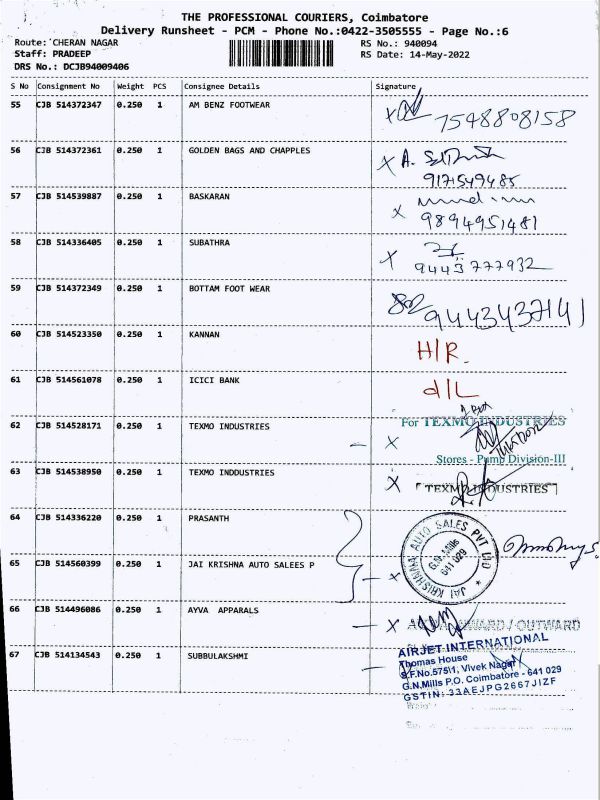 THE PROFESSIONAL COURIERS, Coimbatore
Delivery Runsheet - PCM - Phone No.:0422-3505555 - Page No.:6
Route: CHERAN NAGAR RS No.: 940094
Staff: PRADEEP RS Date: 14-May-2022
DRS No.: DCJB94009406
S No Consignment No Weight PCS Consignee Details Signature
55 CJB 514372347 0.250 1 AM BENZ FOOTWEAR X 7548808158
56 CJB 514372361 0.250 1 GOLDEN BAGS AND CHAPPLES X A.
9171549485
57 CJB 514539887 0.250 1 BASKARAN X
9894951481
58 CJB 514336405 0.250 1 SUBATHRA X
9443777932
59 CJB 514372349 0.250 1 BOTTAM FOOT WEAR 9443437141
60 CJB 514523350 0.250 1 KANNAN H/R.
61 CJB 514561078 0.250 1 ICICI BANK d/L
1 Box
62 CJB 514528171 0.250 1 TEXMO INDUSTRIES For TEXMO INDUSTRIES
X
Stores - Pump Division-III
63 CJB 514538950 0.250 1 TEXMO INDDUSTRIES X TEXMO INDUSTRIES
64 CJB 514336220 0.250 1 PRASANTH
65 CJB 514560399 0.250 1 JAI KRISHNA AUTO SALEES P X
JAI KRISHNAA AUTO SALES PVT LTD
G.N.Mills
641 029
66 CJB 514496086 0.250 1 AYVA APPARALS X INWARD / OUTWARD
67 CJB 514134543 0.250 1 SUBBULAKSHMI
AIRJET INTERNATIONAL
Thomas House
S.F.No.575/1, Vivek Nagar
G.N.Mills P.O. Coimbatore - 641 029
GSTIN: 33AEJPG2667J1ZF